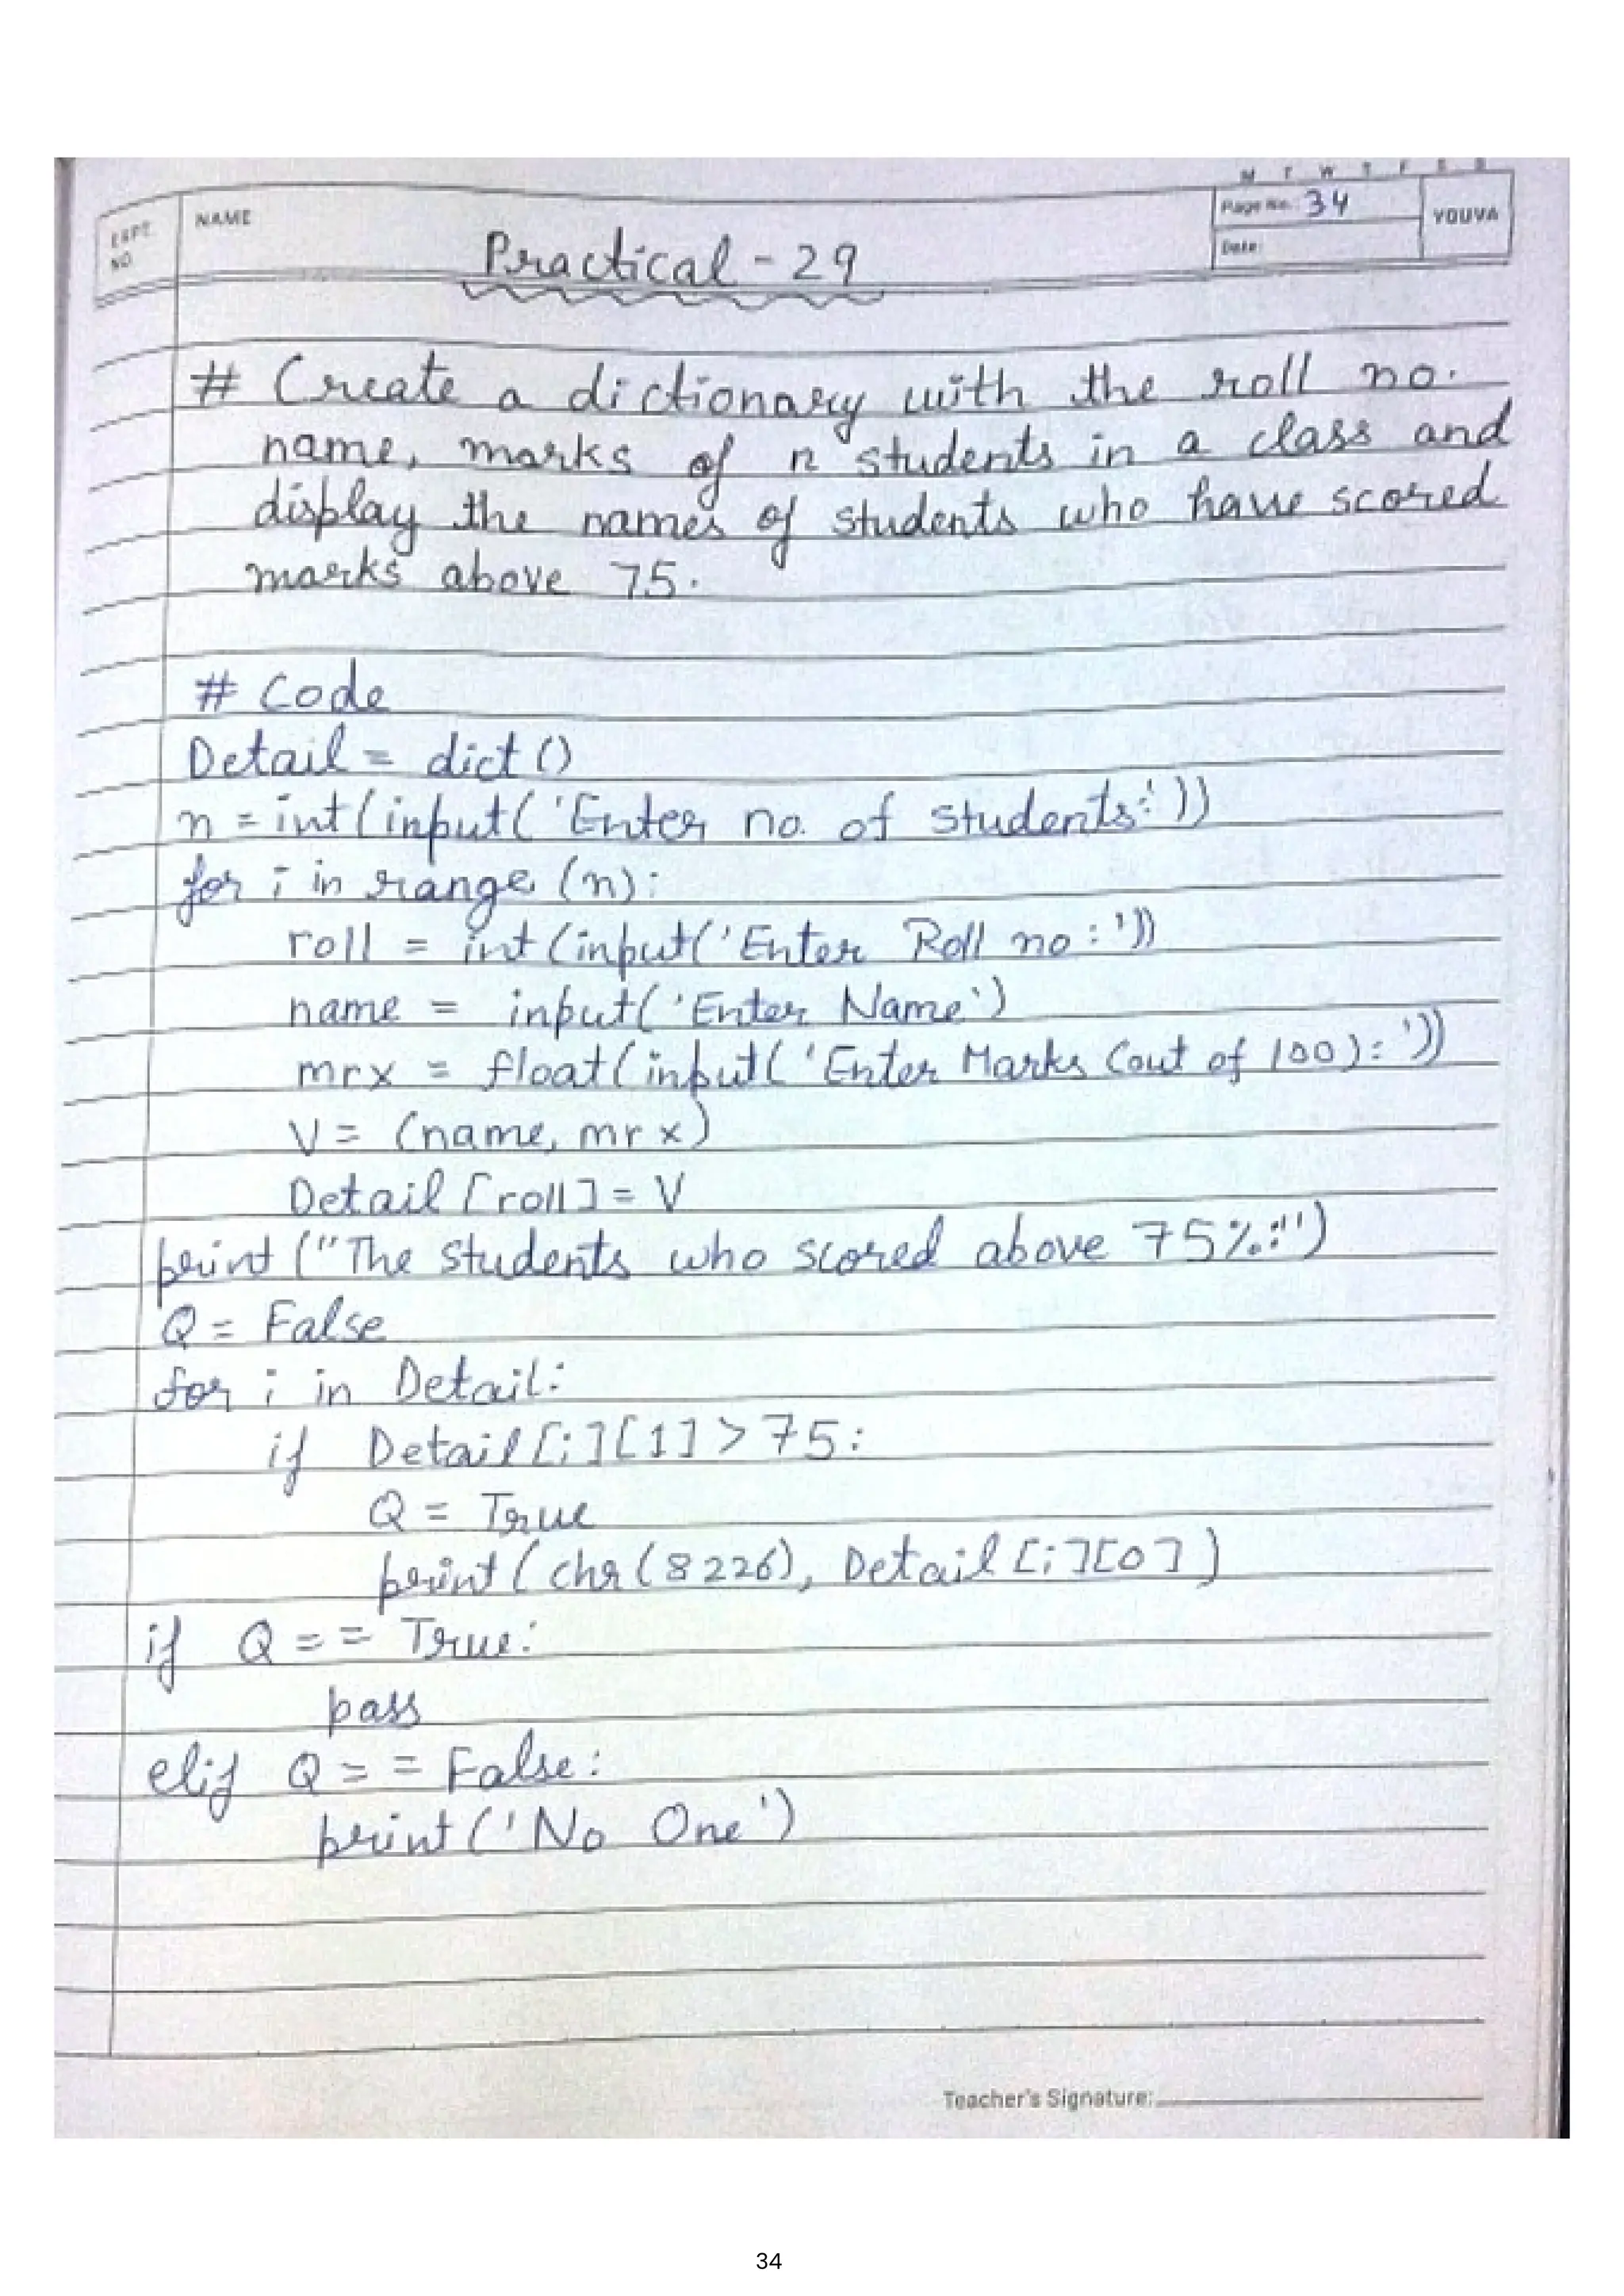 M T W T F S S
EXPT. NO. NAME Page No. 34 YOUVA
Date:
Practical - 29
# Create a dictionary with the roll no.
name, marks of n students in a class and
display the names of students who have scored
marks above 75.
# Code
Detail = dict ()
n = int(input('Enter no. of students:'))
for i in range (n):
roll = int(input('Enter Roll no:'))
name = input('Enter Name')
mrx = float(input('Enter Marks (out of 100): '))
V = (name, mrx)
Detail [roll] = V
print ("The students who scored above 75%:")
Q = False
for i in Detail:
if Detail[i][1] > 75:
Q = True
print(chr(8226), Detail[i][0])
if Q == True:
pass
elif Q == False:
print('No One')
Teacher's Signature:
34